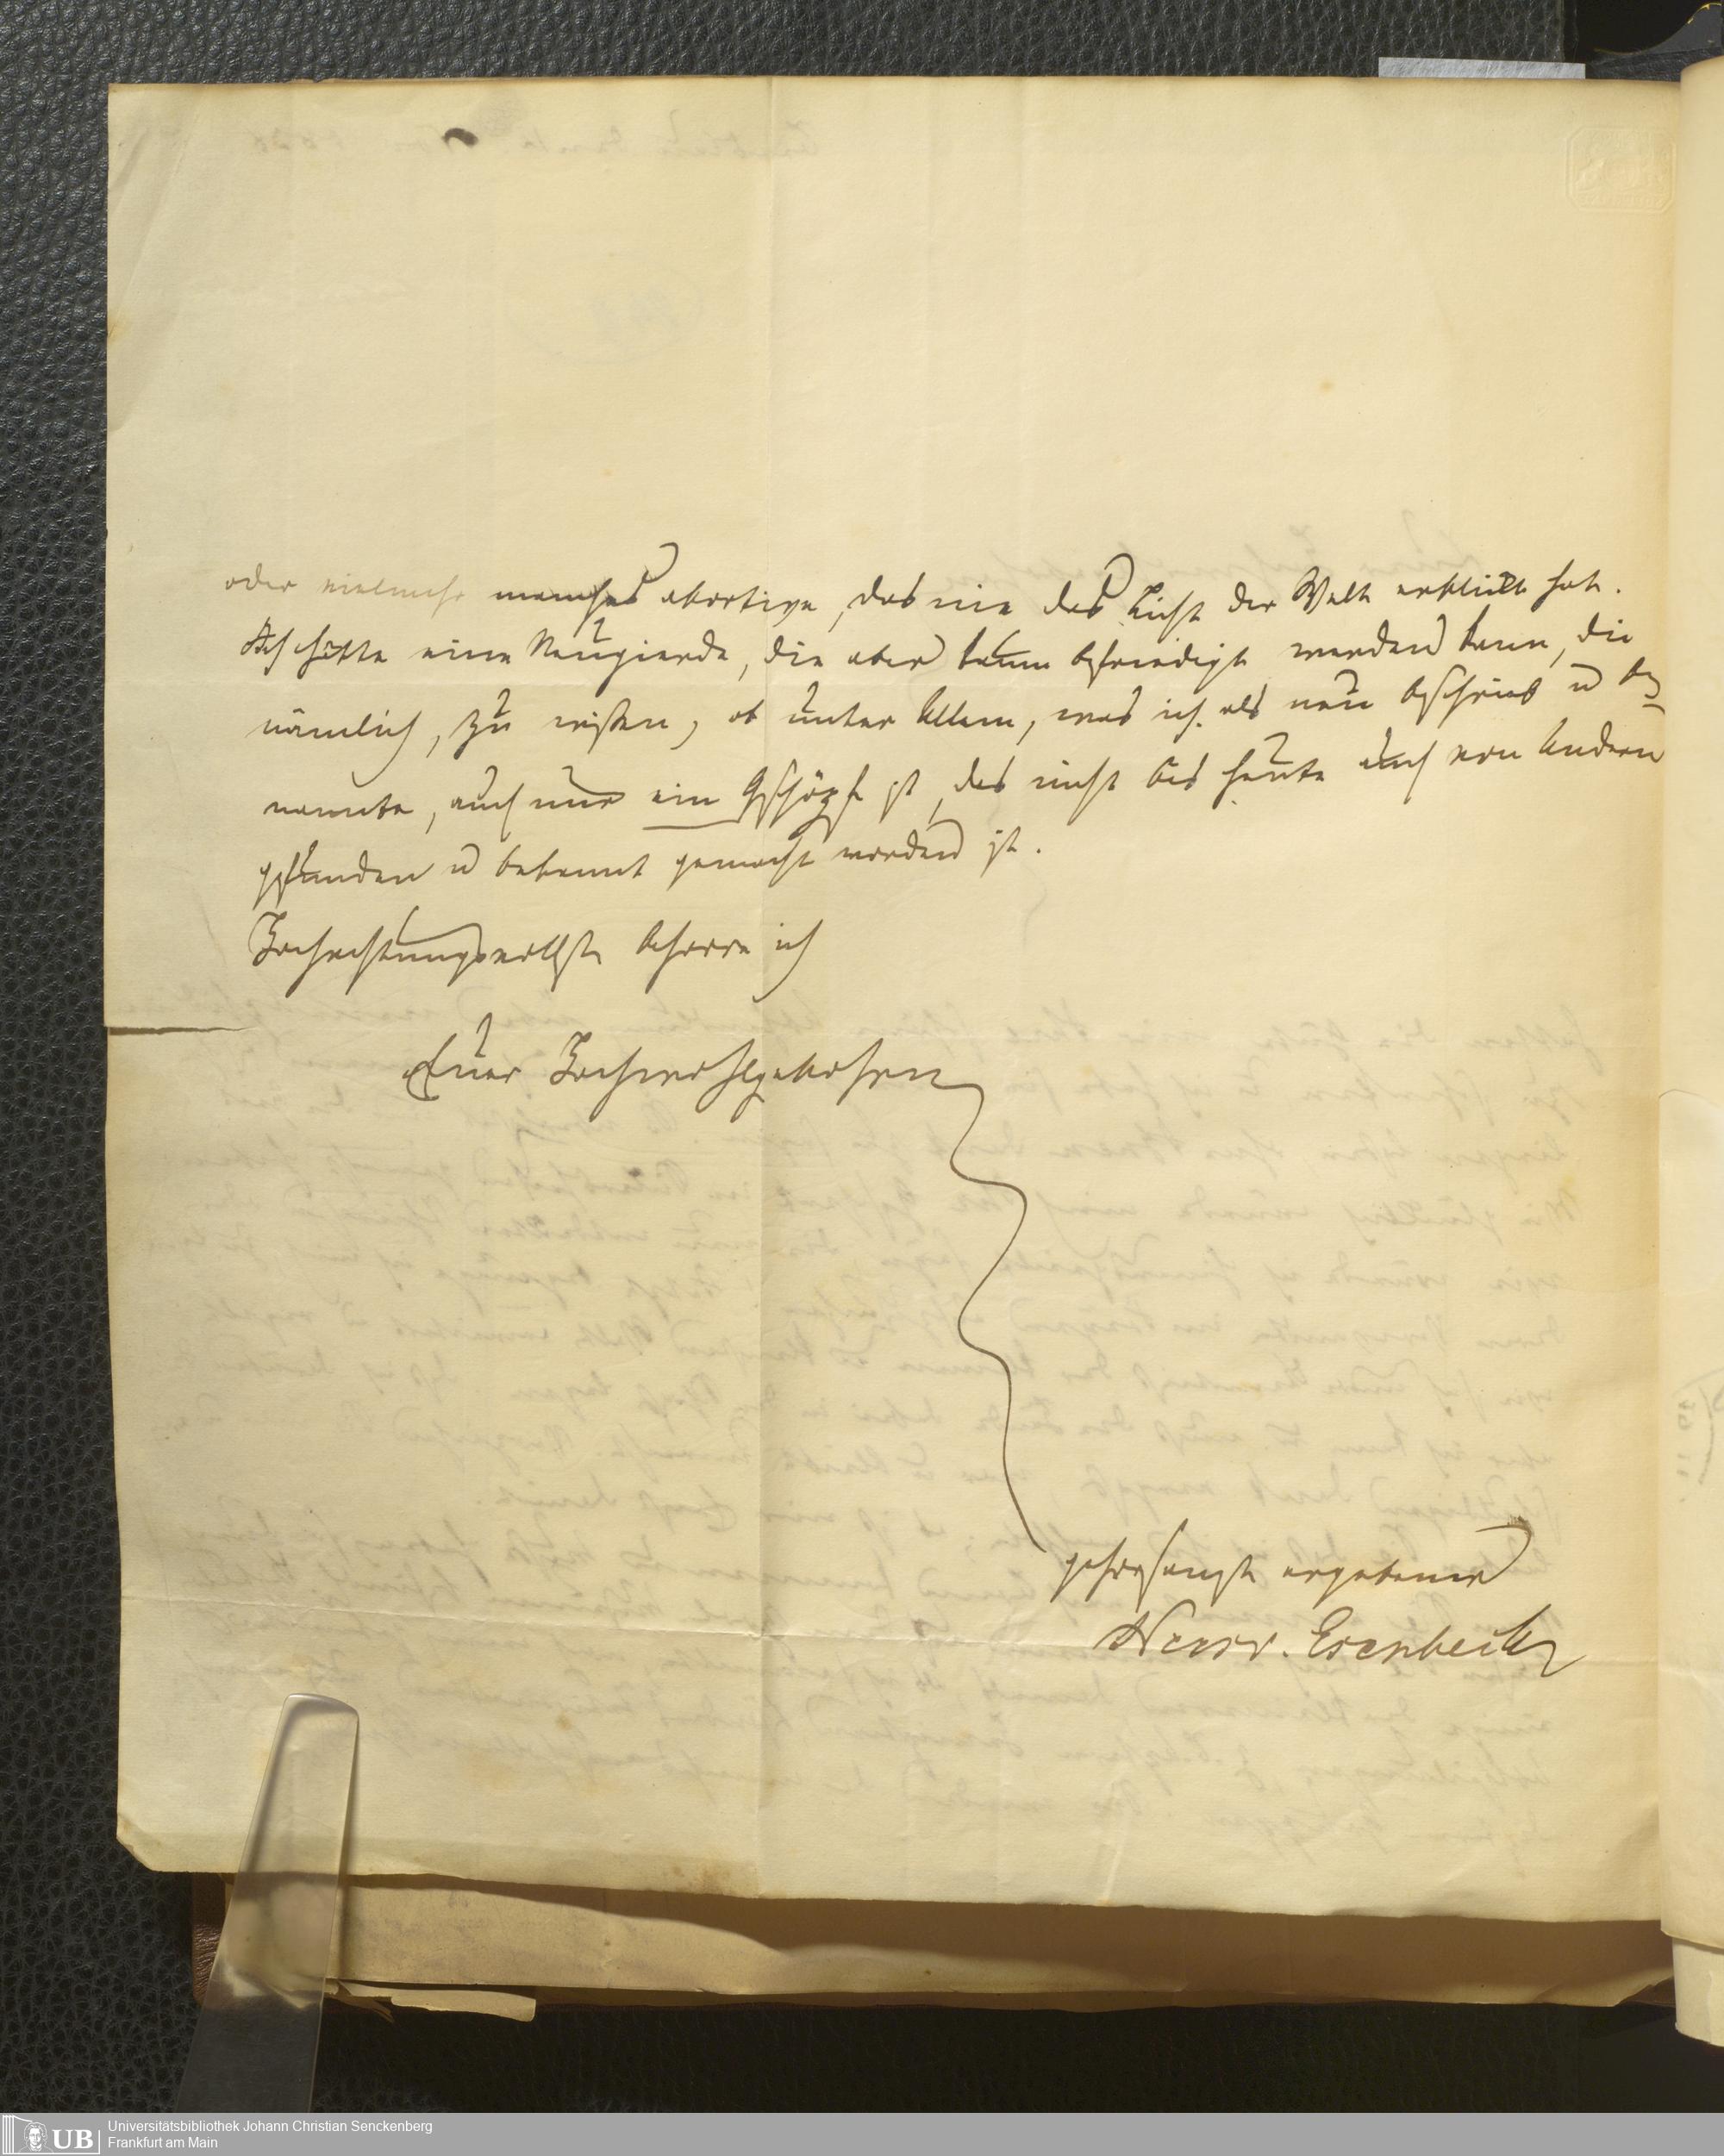 oder vielmehr manches abortive, das nie das Licht der Welt erblickt hat.
Ich hätte eine Neugierde, die aber kaum befriedigt werden kann, die
nämlich, zu wissen, ob unter Allem, was ich als neu beschrieb u be-
nannte, auch nur ein Geschöpf ist, das nicht bis heute auch von Andern
gefunden u bekannt gemacht worden ist.
Hochachtungsvollst beharre ich
Euer Hochwohlgebohren
gehorsamst ergebener
Neesv. Esenbeck
UB
Universitätsbibliothek Johann Christian Senckenberg
Frankfurt am Main